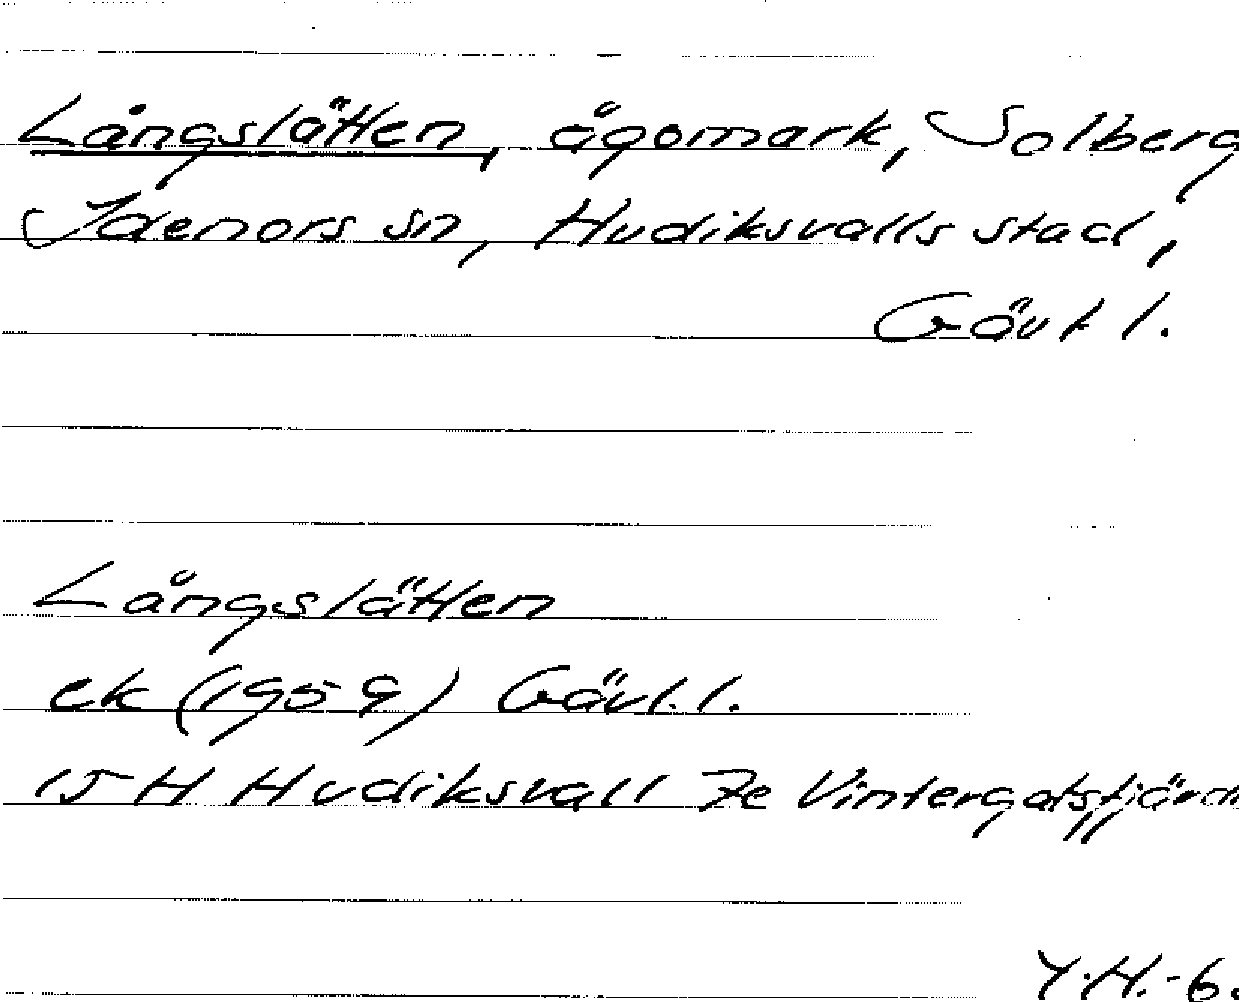 Långslätten, ägomark, Solberg
Idenors sn, Hudiksvalls stad,
Gävl l.
Långslätten
ek (1959) Gävl. l.
15 H Hudiksvall 7e Vintergatstjärn
Y.H.-6